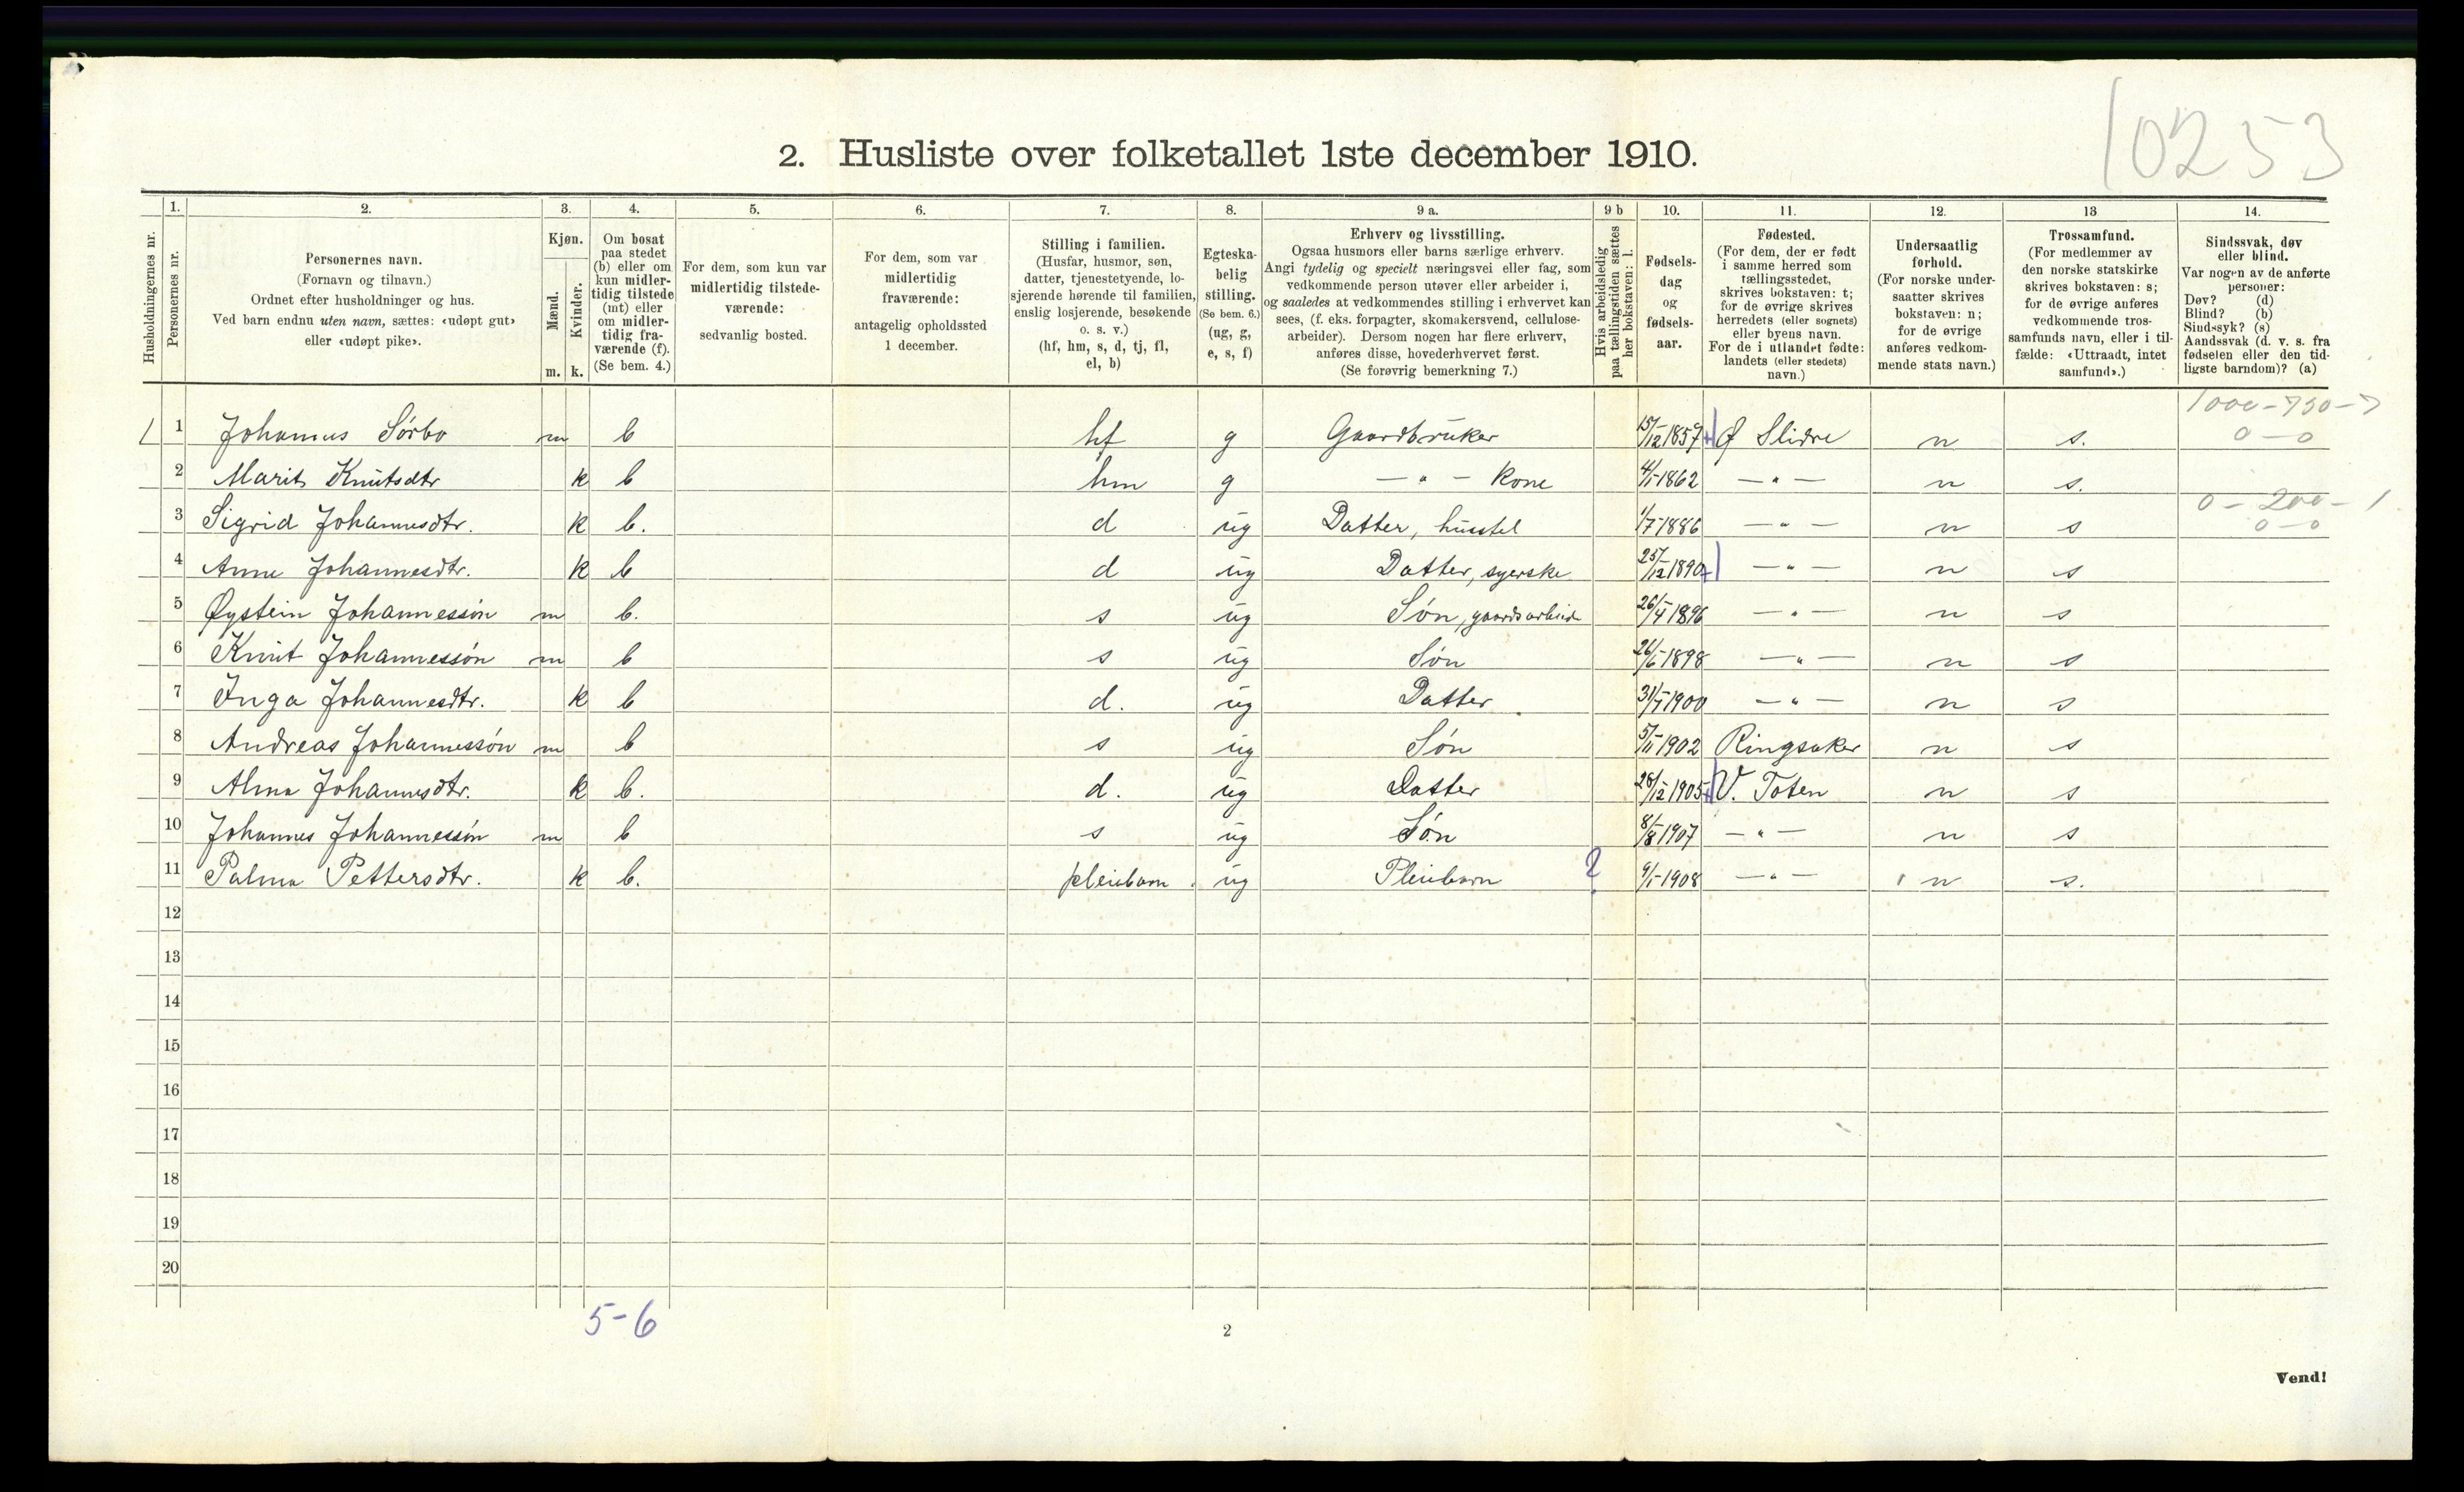 10253
2. Husliste over folketallet 1ste december 1910.
Husholdningernes nr.
1.
Personernes nr.
2.
Personernes navn.
(Fornavn og tilnavn.)
Ordnet efter husholdninger og hus.
Ved barn endnu uten navn, sættes: «udøpt gut»
eller «udøpt pike».
3.
Kjøn.
Mænd.
Kvinder.
m. k.
4.
Om bosat
paa stedet
(b) eller om
kun midler-
tidig tilstede
(mt) eller
om midler-
tidig fra-
værende (f).
(Se bem. 4.)
5.
For dem, som kun var
midlertidig tilstede-
værende:
sedvanlig bosted.
6.
For dem, som var
midlertidig
fraværende:
antagelig opholdssted
1 december.
7.
Stilling i familien.
(Husfar, husmor, søn,
datter, tjenestetyende, lo-
sjerende hørende til familien,
enslig losjerende, besøkende
o. s. v.)
(hf, hm, s, d, tj, fl,
el, b)
8.
Egteska-
belig
stilling.
(Se bem. 6.)
(ug, g,
e, s, f)
9 a.
Erhverv og livsstilling.
Ogsaa husmors eller barns særlige erhverv.
Angi tydelig og specielt næringsvei eller fag, som
vedkommende person utøver eller arbeider i,
og saaledes at vedkommendes stilling i erhvervet kan
sees, (f. eks. forpagter, skomakersvend, cellulose-
arbeider). Dersom nogen har flere erhverv,
anføres disse, hovederhvervet først.
(Se forøvrig bemerkning 7.)
9 b
Hvis arbeidsledig
paa tællingstiden sættes
her bokstaven: l.
10.
Fødsels-
dag
og
fødsels-
aar.
11.
Fødested.
(For dem, der er født
i samme herred som
tællingsstedet,
skrives bokstaven: t;
for de øvrige skrives
herredets (eller sognets)
eller byens navn.
For de i utlandet fødte:
landets (eller stedets)
navn.)
12.
Undersaatlig
forhold.
(For norske under-
saatter skrives
bokstaven: n;
for de øvrige
anføres vedkom-
mende stats navn.)
13
Trossamfund.
(For medlemmer av
den norske statskirke
skrives bokstaven: s;
for de øvrige anføres
vedkommende tros-
samfunds navn, eller i til-
fælde: «Uttraadt, intet
samfund».)
14.
Sindssvak, døv
eller blind.
Var nogen av de anførte
personer:
Døv? (d)
Blind? (b)
Sindssyk? (s)
Aandssvak (d. v. s. fra
fødselen eller den tid-
ligste barndom)? (a)
1 1 Johannes Sørbo m b hf g Gaardbruker 15/12 1857 Ø Slidre n s. 1000-750-7 0-0
2 Marit Knutsdtr k b hm g — " — kone 4/1-1862 — " — n s.
3 Sigrid Johannesdtr. k b. d ug Datter, husstel 1/7-1886 — " — n s 0-200-1 0-0
4 Anne Johannesdtr. k b d ug Datter, syerske 25/12 1890 — " — n s
5 Øystein Johannessøn m b. s ug Søn, gaardsarbeide 26/4 1896 — " — n s
6 Knut Johannessøn m b s ug Søn 26/6-1898 — " — n s
7 Inga Johannesdtr. k b d. ug Datter 1900 — " — n s
8 Andreas Johannessøn m b s ug Søn 5/11 1902 Ringsaker n s
9 Alma Johannesdtr. k b. d. ug Datter 28/12 1905 V. Toten n s
10 Johannes Johannessøn m b s ug Søn 8/8 1907 — " — n s
11 Palma Pettersdtr. k b. pleiebarn ug Pleiebarn ? 1908 — " — n s.
12
13
14
15
16
17
18
19
20
5-6
2
Vend!